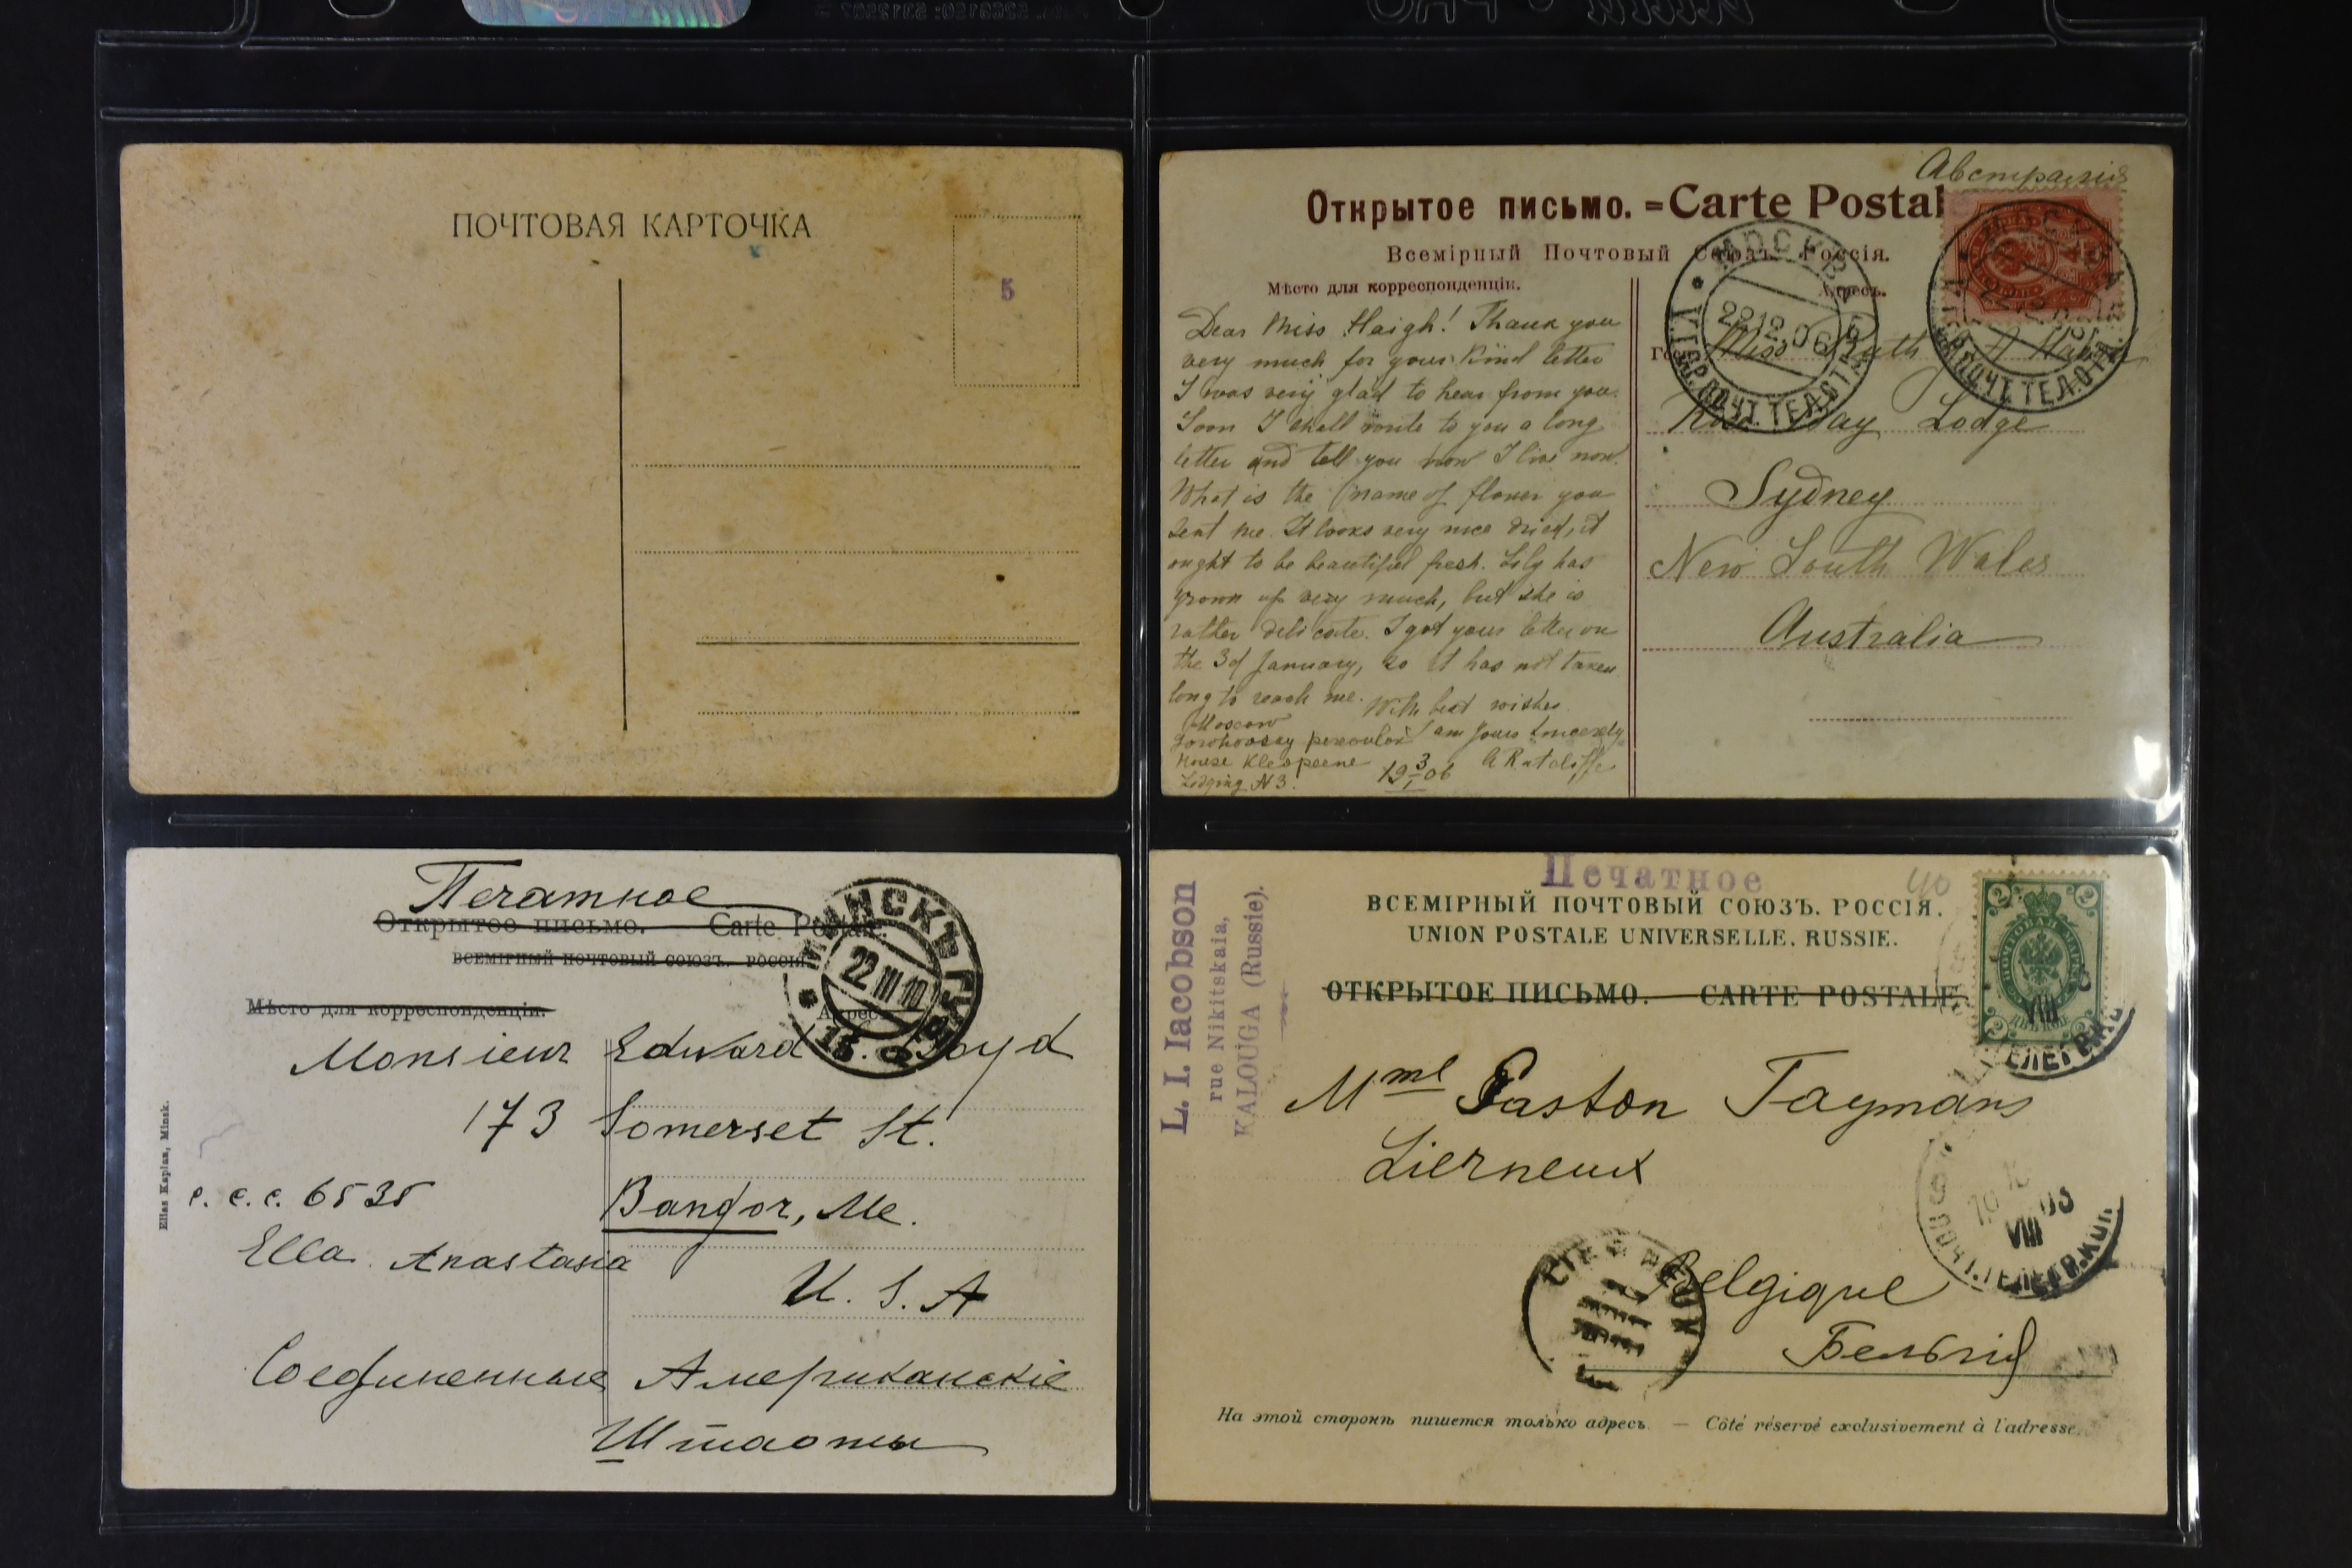 ПОЧТОВАЯ КАРТОЧКА
5
Австралія
Открытое письмо. = Carte Postal
Всемірный Почтовый Союзъ. Россія.
Мѣсто для корреспонденціи.
Адресъ.
МОСКВА
22 12 06
ПОЧТ. ТЕЛ. ОТД.
Dear Miss Haigh! Thank you
very much for your kind letter
I was very glad to hear from you.
Soon I shall write to you a long
letter and tell you how I live now.
What is the name of flower you
sent me. It looks very nice dried, it
ought to be beautiful fresh. Lily has
grown up very much, but she is
rather delicate. I got your letter on
the 3d January, so it has not taken
long to reach me. With best wishes
I am yours sincerely
A Ratcliffe
Moscow
House
Lodging N 3.
19 3/I 06
Miss Ruth
Bay Lodge
Sydney
New South Wales
Australia
Печатное
Открытое письмо. Carte Postale.
ВСЕМІРНЫЙ ПОЧТОВЫЙ СОЮЗЪ. РОССІЯ
Мѣсто для корреспонденціи.
Адрес
МИНСКЪ ГУБ
22 III 10
Monsieur Edward Boyd
173 Somerset St.
Bangor, Me.
U. S. A
с. с. с. 6535
Ella Anastasia
Соединенные Американскіе
Штаты
Elias Kaplan, Minsk.
Печатное
40
ВСЕМІРНЫЙ ПОЧТОВЫЙ СОЮЗЪ. РОССІЯ.
UNION POSTALE UNIVERSELLE. RUSSIE.
ОТКРЫТОЕ ПИСЬМО. CARTE POSTALE.
L. I. Iacobson
rue Nikitskaia,
KALOUGA (Russie).
2
VIII
Mme Gaston Taymans
Lierneux
Belgique
Бельгія
VIII 03
На этой сторонѣ пишется только адресъ. — Côté réservé exclusivement à l'adresse.